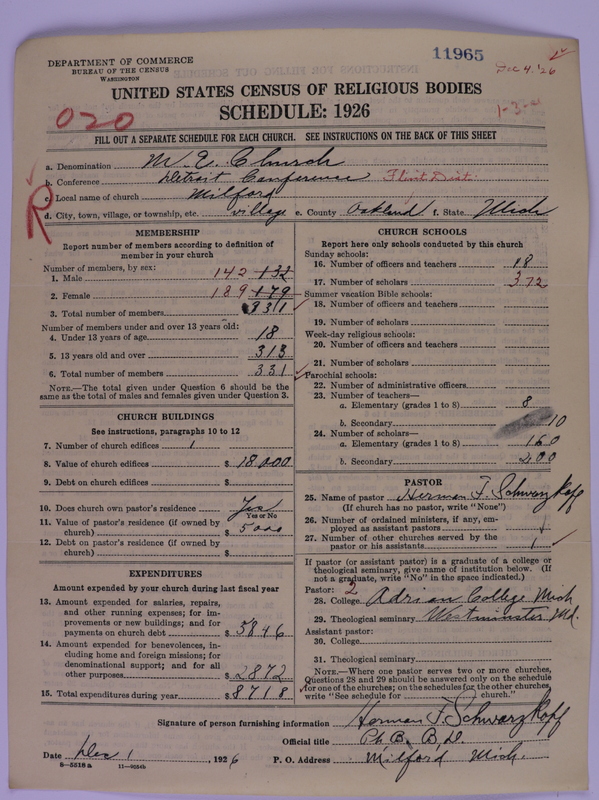 DEPARTMENT OF COMMERCE
BUREAU OF THE CENSUS
WASHINGTON
11965
Dec 4. '26
UNITED STATES CENSUS OF RELIGIOUS BODIES
SCHEDULE: 1926
020
1-3-
FILL OUT A SEPARATE SCHEDULE FOR EACH CHURCH. SEE INSTRUCTIONS ON THE BACK OF THIS SHEET
R
a. Denomination M. E. Church
b. Conference Detroit Conference Flint Dist.
c. Local name of church Milford
d. City, town, village, or township, etc. village e. County Oakland f. State Mich
MEMBERSHIP
Report number of members according to definition of
member in your church
Number of members, by sex:
1. Male 142 132
2. Female 189 179
3. Total number of members 331
Number of members under and over 13 years old:
4. Under 13 years of age 18
5. 13 years old and over 313
6. Total number of members 331
NOTE.—The total given under Question 6 should be
same as the total of males and females given under Question 3.
CHURCH BUILDINGS
See instructions, paragraphs 10 to 12
7. Number of church edifices 1
8. Value of church edifices $ 18000
9. Debt on church edifices $
10. Does church own pastor's residence? Yes
Yes or No
11. Value of pastor's residence (if owned by
church) $ 5000
12. Debt on pastor's residence (if owned by
church) $
EXPENDITURES
Amount expended by your church during last fiscal year
13. Amount expended for salaries, repairs,
and other running expenses; for im-
provements or new buildings; and for
payments on church debt $ 5846
14. Amount expended for benevolences, in-
cluding home and foreign missions; for
denominational support; and for all
other purposes $ 2872
15. Total expenditures during year $ 8718
CHURCH SCHOOLS
Report here only schools conducted by this church
Sunday schools:
16. Number of officers and teachers 18
17. Number of scholars 372
Summer vacation Bible schools:
18. Number of officers and teachers
19. Number of scholars
Week-day religious schools:
20. Number of officers and teachers
21. Number of scholars
Parochial schools:
22. Number of administrative officers
23. Number of teachers—
a. Elementary (grades 1 to 8) 8
b. Secondary 10
24. Number of scholars—
a. Elementary (grades 1 to 8) 160
b. Secondary 200
PASTOR
25. Name of pastor Herman F. Schwarzkopf
(If church has no pastor, write "None")
26. Number of ordained ministers, if any, em-
ployed as assistant pastors
27. Number of other churches served by the
pastor or his assistants 1
If pastor (or assistant pastor) is a graduate of a college or
theological seminary, give name of institution below. (If
not a graduate, write "No" in the space indicated.)
Pastor: 2
28. College Adrian College Mich
29. Theological seminary Westminster Md.
Assistant pastor:
30. College
31. Theological seminary
NOTE.—Where one pastor serves two or more churches,
Questions 28 and 29 should be answered only on the schedule
for one of the churches; on the schedules for the other churches
write "See schedule for church."
Signature of person furnishing information Herman F. Schwarzkopf
Official title Ph B. B. D.
Date Dec 1, 1926 P. O. Address Milford Mich.
8—5518 a